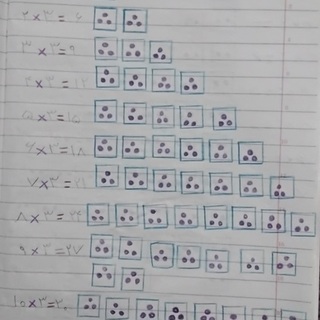 ۲×۳=۶
۳×۳=۹
۴×۳=۱۲
۵×۳=۱۵
۶×۳=۱۸
۷×۳=۲۱
۸×۳=۲۴
۹×۳=۲۷
۱۰×۳=۳۰